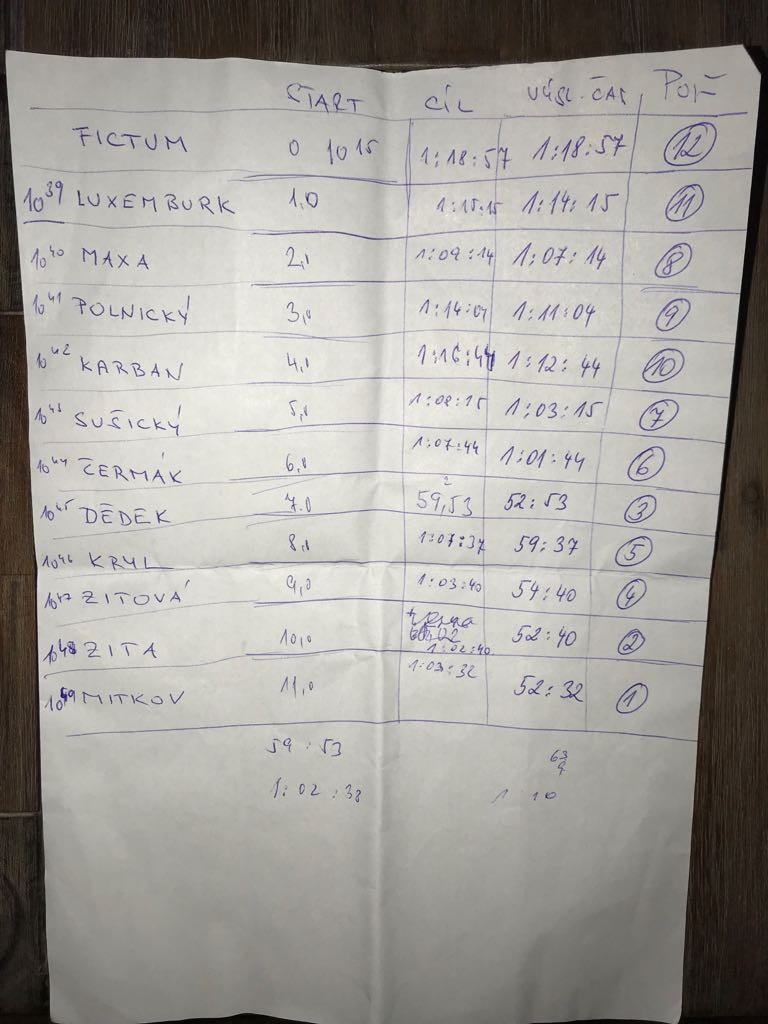 START CÍL VÝSL. ČAS POŘ
FICTUM 0 10 15 1:18:57 1:18:57 12
10 39 LUXEMBURK 1,0 1:15:15 1:14:15 11
10 40 MAXA 2,0 1:09:14 1:07:14 8
10 41 POLNICKÝ 3,0 1:14:04 1:11:04 9
10 42 KARBAN 4,0 1:16:44 1:12:44 10
10 43 SUŠICKÝ 5,0 1:08:15 1:03:15 7
10 44 ČERMÁK 6,0 1:07:44 1:01:44 6
10 45 DĚDEK 7,0 59,53 52:53 3
10 46 KRYL 8,0 1:07:37 59:37 5
10 47 ZITOVÁ 9,0 1:03:40 54:40 4
10 48 ZITA 10,0 1:02:40 52:40 2
10 49 MITKOV 11,0 1:03:32 52:32 1
59:53 63
9
1:02:38 1 10